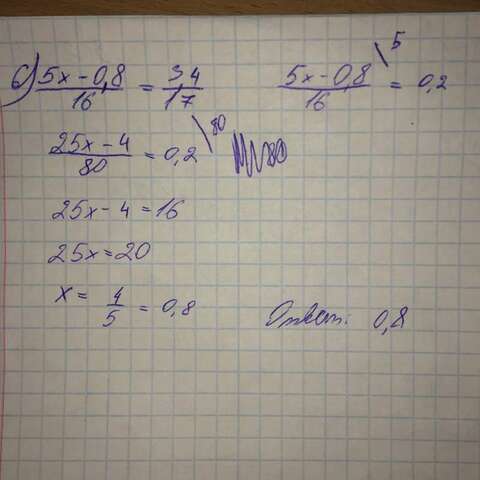 б) (5x - 0,8)/16 = 3,4/17   (5x - 0,8)/16 \5 = 0,2
(25x - 4)/80 = 0,2 \80
25x - 4 = 16
25x = 20
x = 4/5 = 0,8   Ответ: 0,8